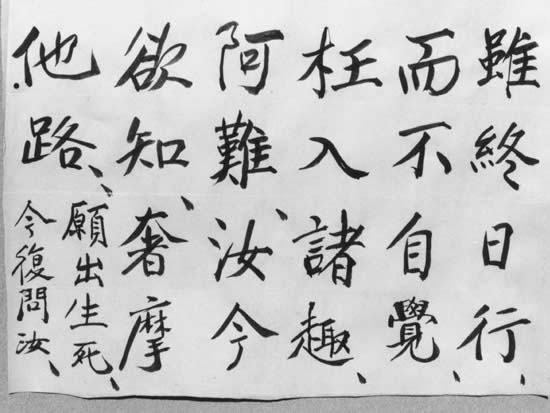 雖終日行、
而不自覺、
枉入諸趣、
阿難、汝今
欲知、奢摩
他路、
願出生死、
今復問汝、